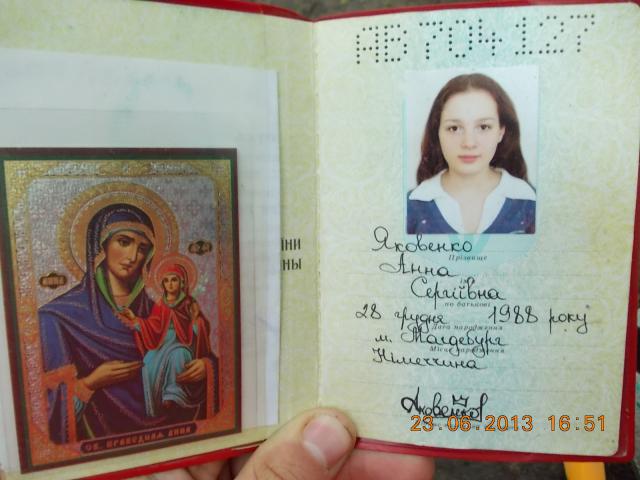 СВ. ПРАВЕДНАЯ АННА
ЇНИ
НЫ
АВ 704127
Яковенко
Прізвище
Анна
Сергіївна
по батькові
28 грудня 1988 року
Дата народження
м. Магдебург
Місце народження
Німеччина
23.06.2013 16:51